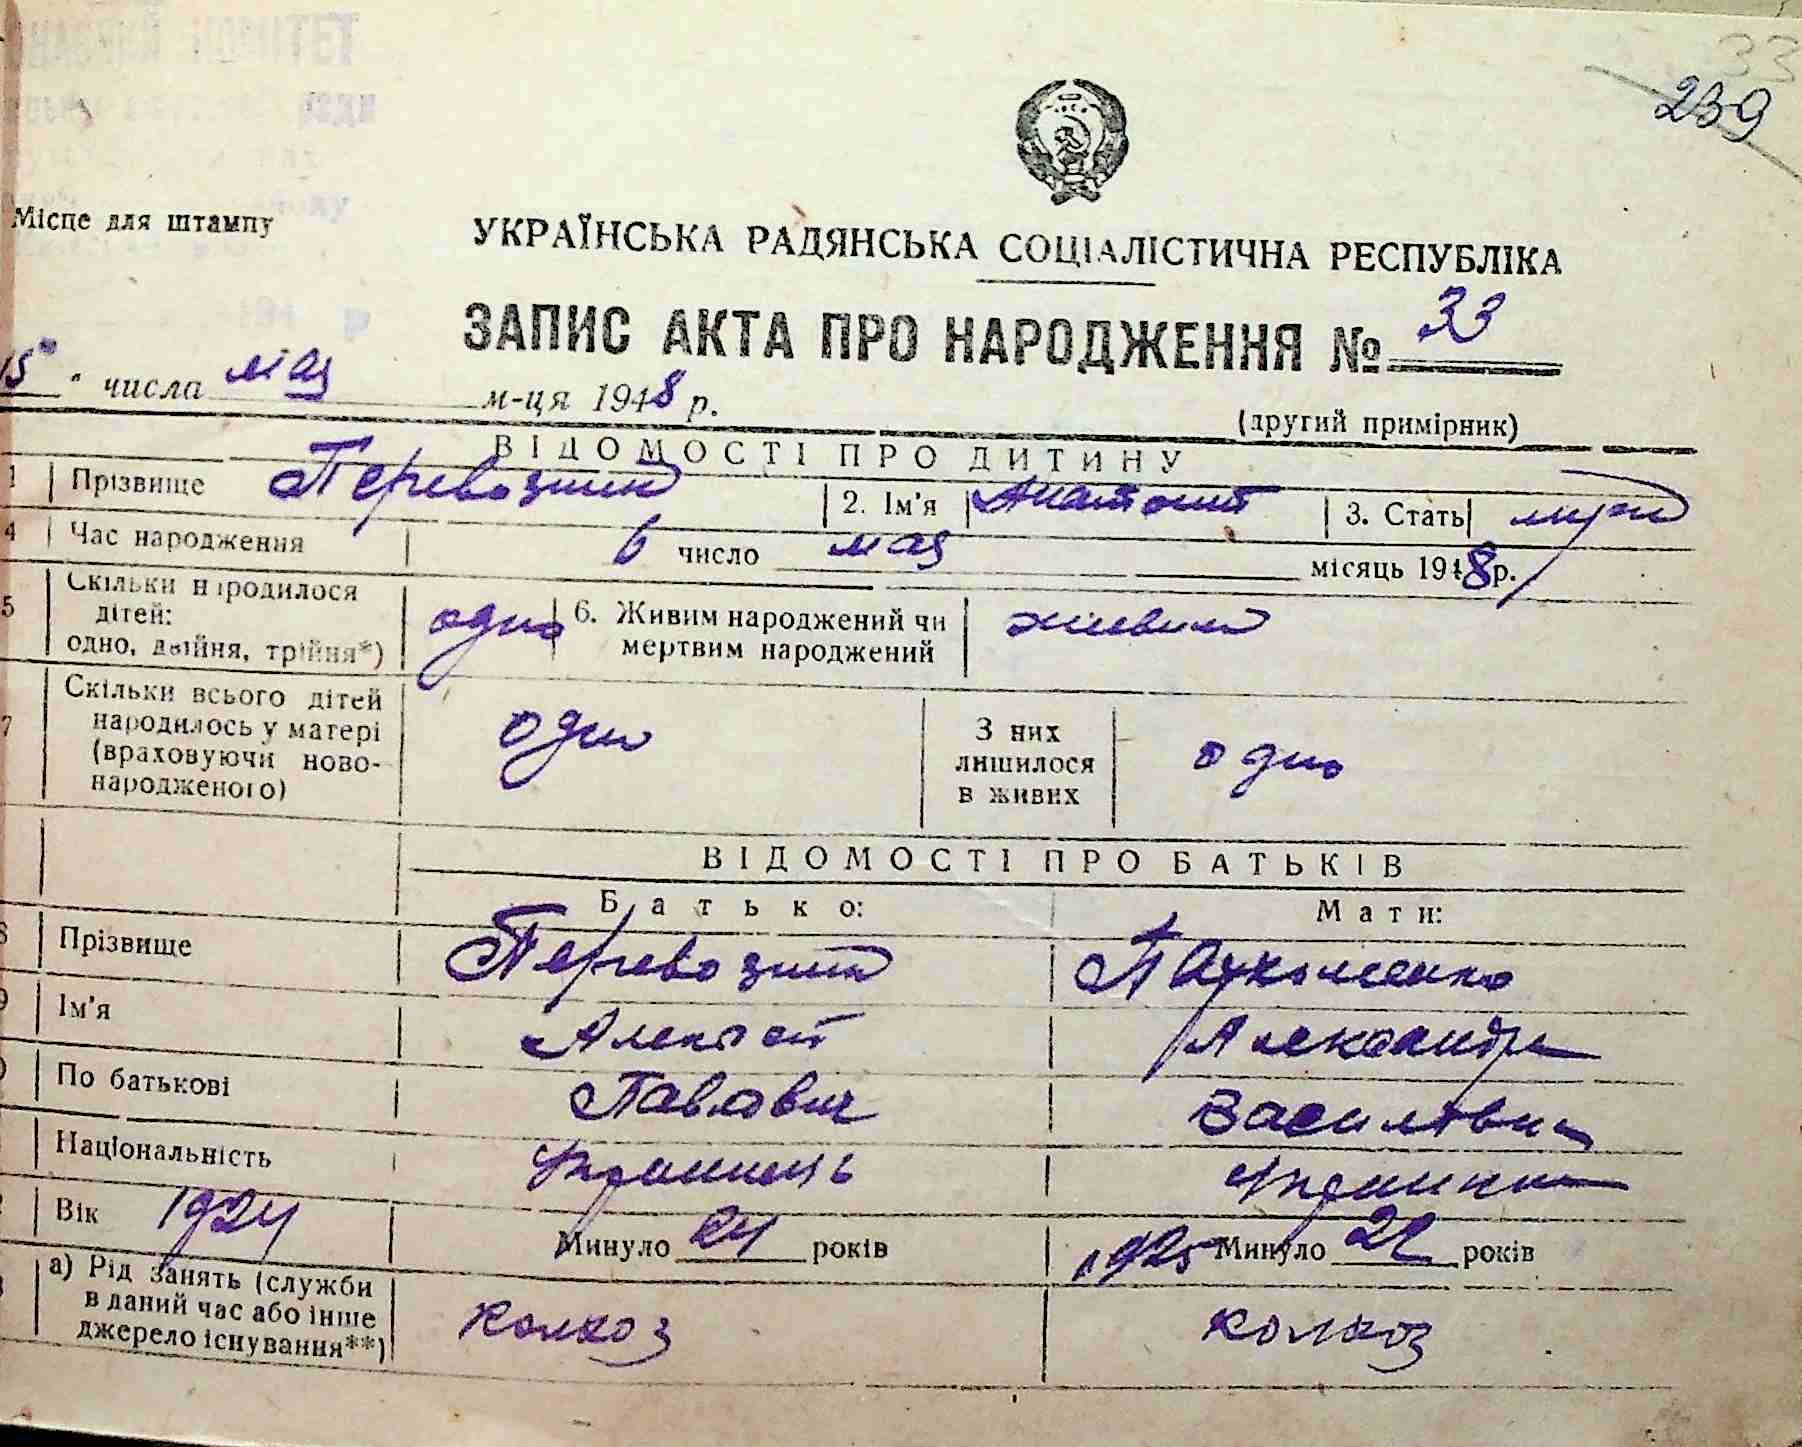 33
239
Місце для штампу
УКРАЇНСЬКА РАДЯНСЬКА СОЦІАЛІСТИЧНА РЕСПУБЛІКА
ЗАПИС АКТА ПРО НАРОДЖЕННЯ № 33
15 " числа мая м-ця 1948 р.
(другий примірник)
ВІДОМОСТІ ПРО ДИТИНУ
1 Прізвище Перевозник 2. Ім'я Анатолий 3. Стать муж
4 Час народження 6 число мая місяць 1948 р.
5 Скільки народилося дітей: одно, двійня, трійня*) одно 6. Живим народжений чи мертвим народжений живим
7 Скільки всього дітей народилось у матері (враховуючи новонародженого) одно З них лишилося в живих одно
ВІДОМОСТІ ПРО БАТЬКІВ
Батько: Мати:
8 Прізвище Перевозник Пархоменко
9 Ім'я Алексей Александра
По батькові Павлович
Національність Украинець Украинка
Вік 1924 Минуло 24 років 1925 Минуло 22 років
а) Рід занять (служби в даний час або інше джерело існування**) колхоз колхоз